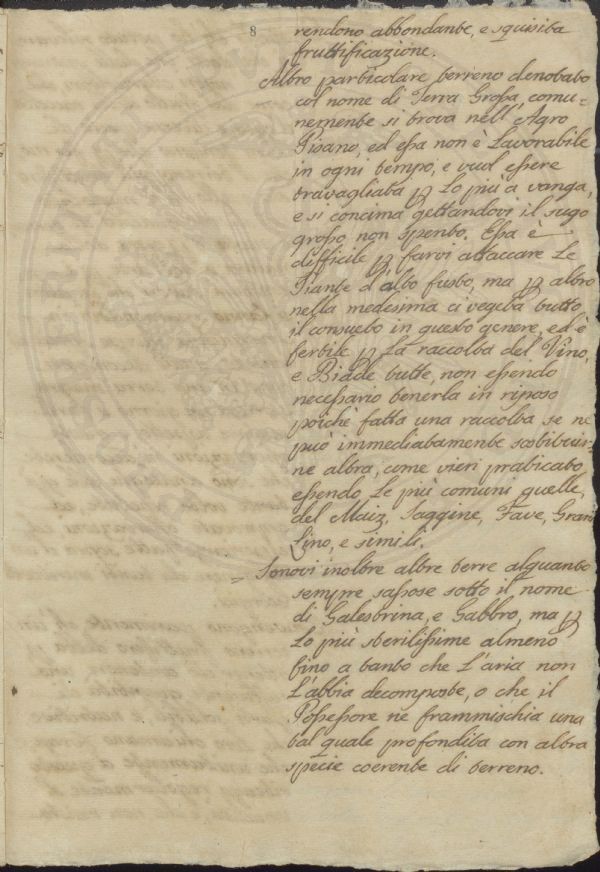 8
rendono abbondante, e squisita
fruttificazione.
Altro particolare terreno denotato
col nome di Terra Grossa, comu=
nemente si trova nell'Agro
Pisano, ed essa non è Lavorabile
in ogni tempo, e vuol essere
travagliata p Lo più a vanga,
e si concima gettandovi il sugo
grosso non spento. Essa è
difficile p farvi attaccare Le
Piante d'alto fusto, ma p altro
nella medesima ci vegeta tutto
il consueto in questo genere, ed è
fertile p La raccolta del Vino,
e Biade tutte, non essendo
necessario tenerla in riposo
poichè fatta una raccolta se ne
può immediatamente sostituir=
ne altra, come vien praticato,
essendo Le più comuni quelle,
del Maiz, Saggine, Fave, Grani
Lino, e simili.
= Sonovi inoltre altre terre alquanto
sempre sassose sotto il nome
di Galestrina, e Gabbro, ma p
Lo più sterilissime almeno
fino a tanto che L'aria non
L'abbia decomposte, o che il
Possessore ne frammischia una
tal quale profondita con altra
specie coerente di terreno.